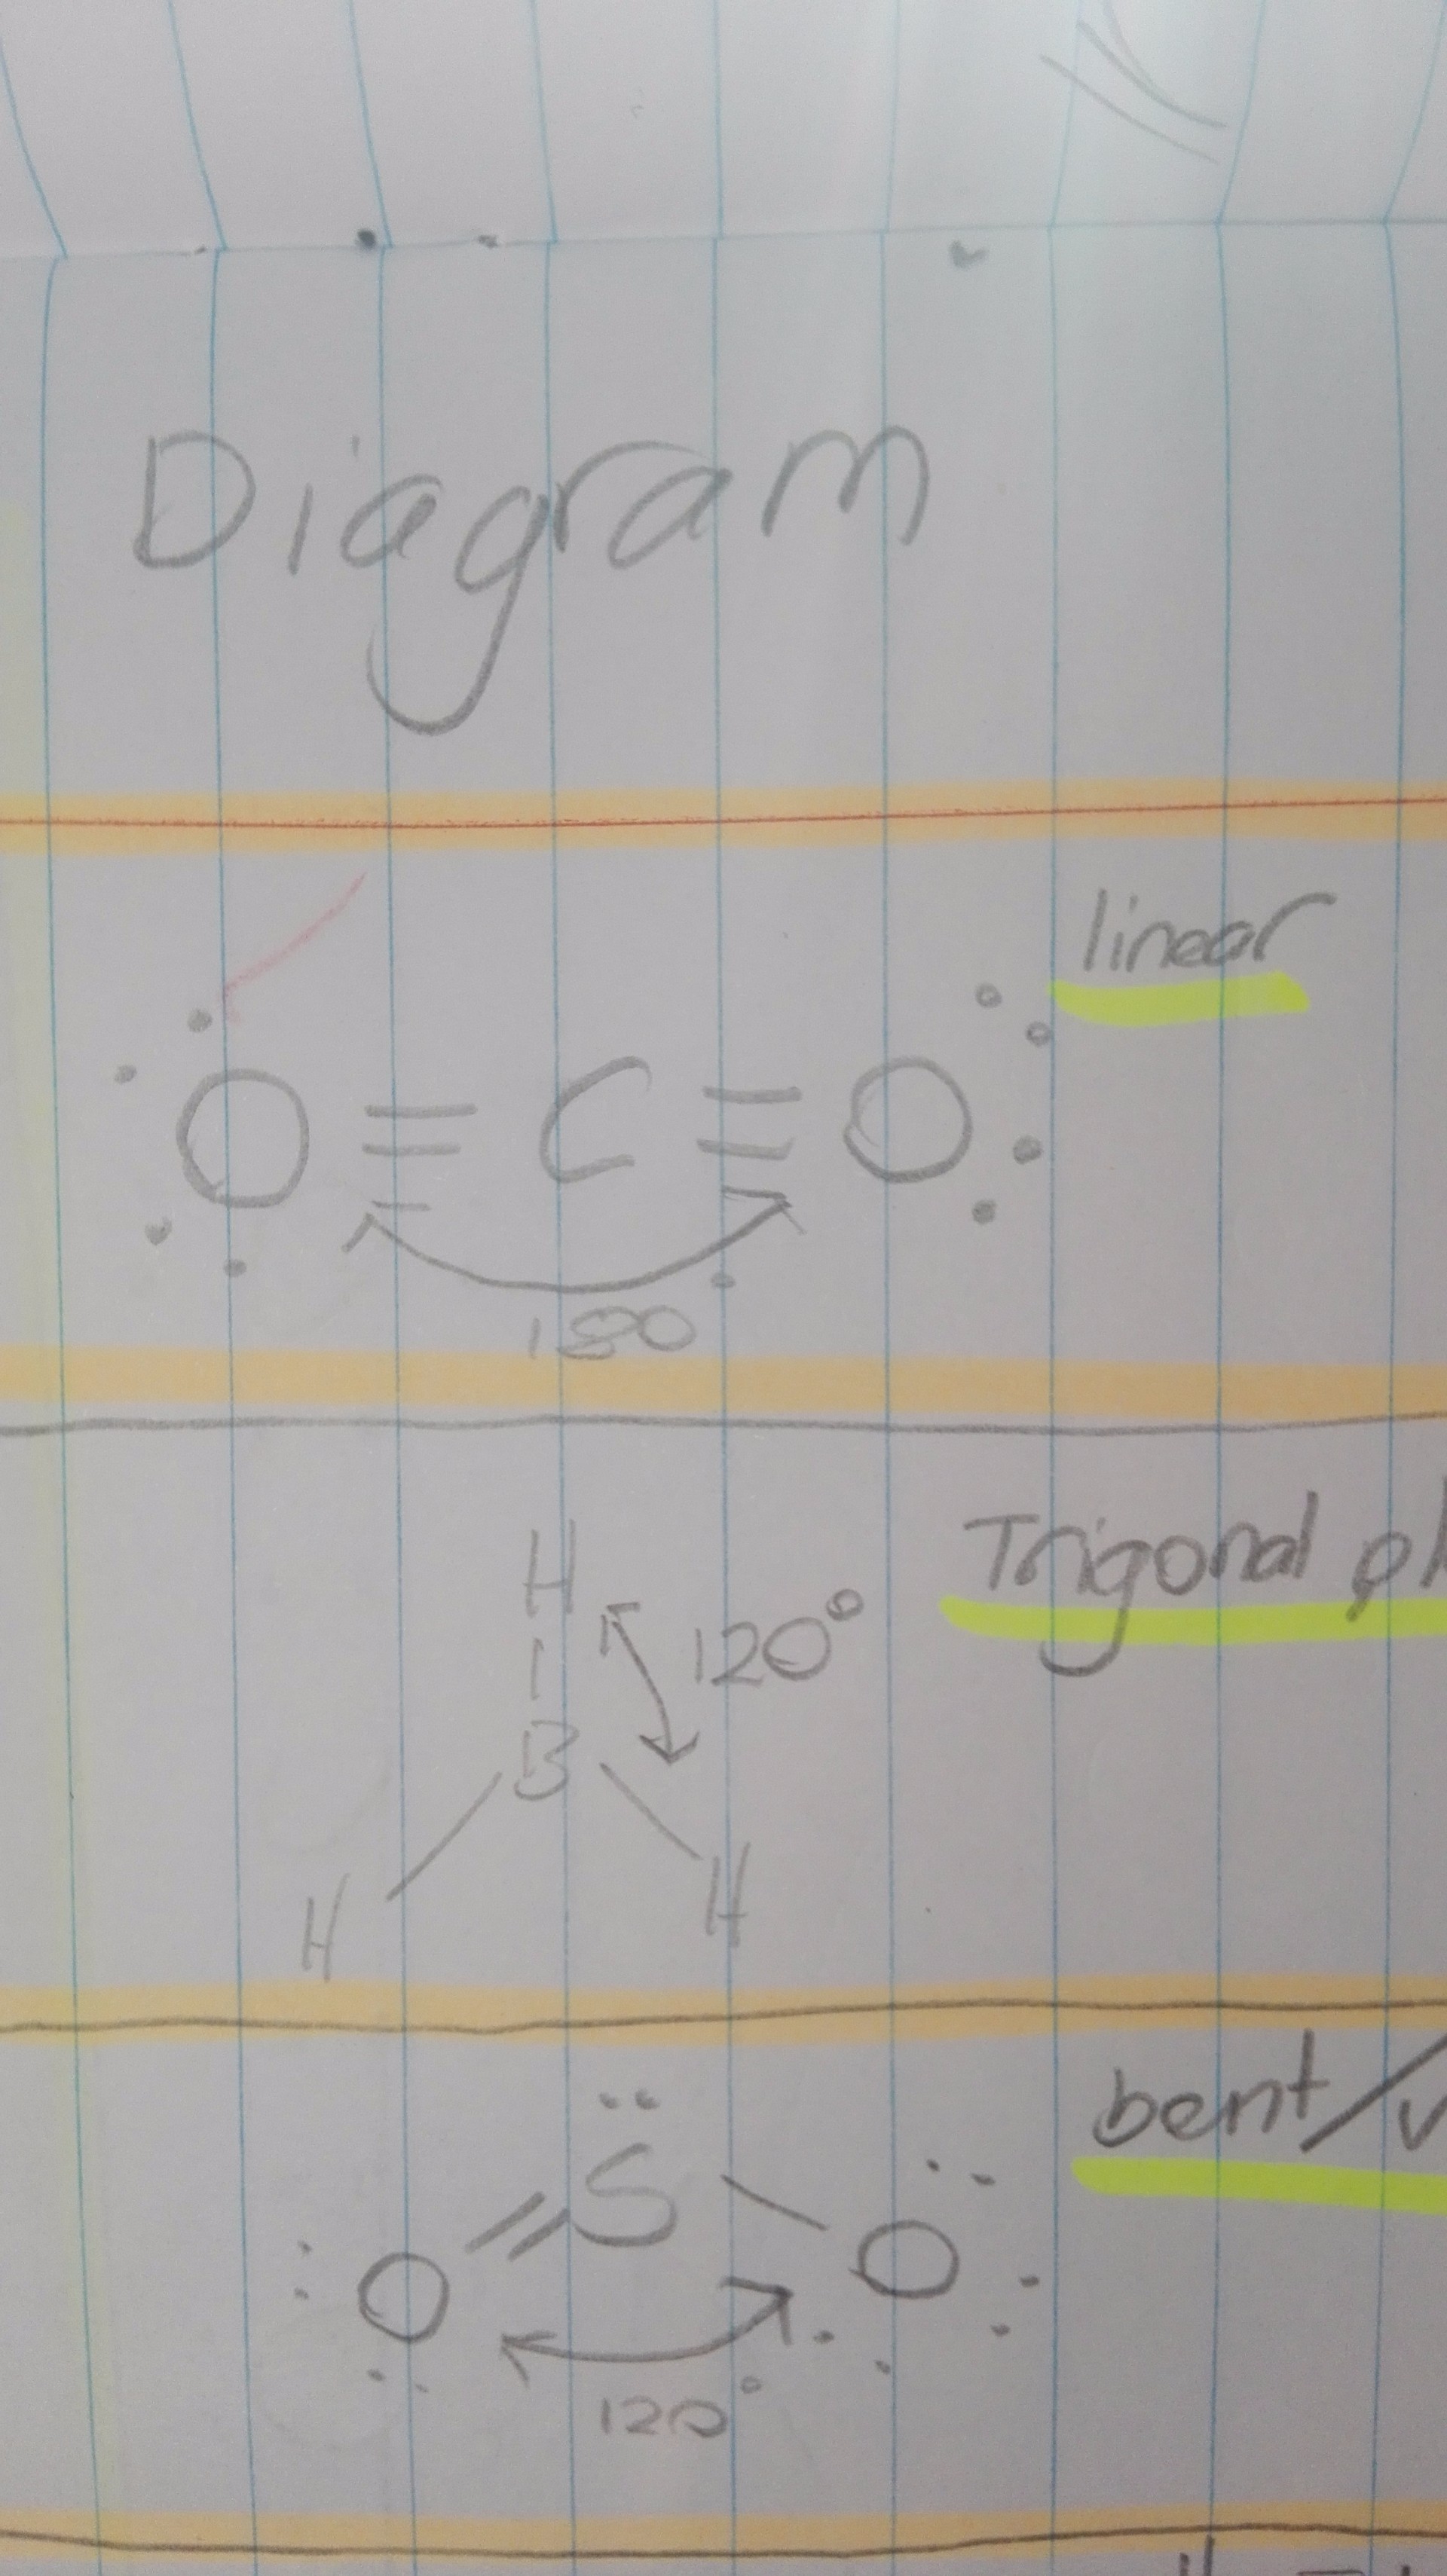 Diagram
linear
O = C = O
180°
Trigonal pl
H
120°
B
H H
bent/v
S
O = O
120°